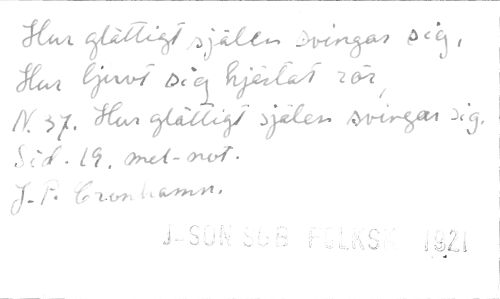 Hur glättigt själen svingar sig,
Hur ljuvt sig hjertat rör,
N. 37. Hur glättigt själen svingar sig.
Sid. 19. mel-not.
J-P. Cronhamn.
J-SON FOLKSK 1921